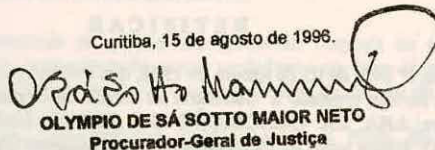 Curitiba, 15 de agosto de 1996.
OLYMPIO DE SÁ SOTTO MAIOR NETO
Procurador-Geral de Justiça